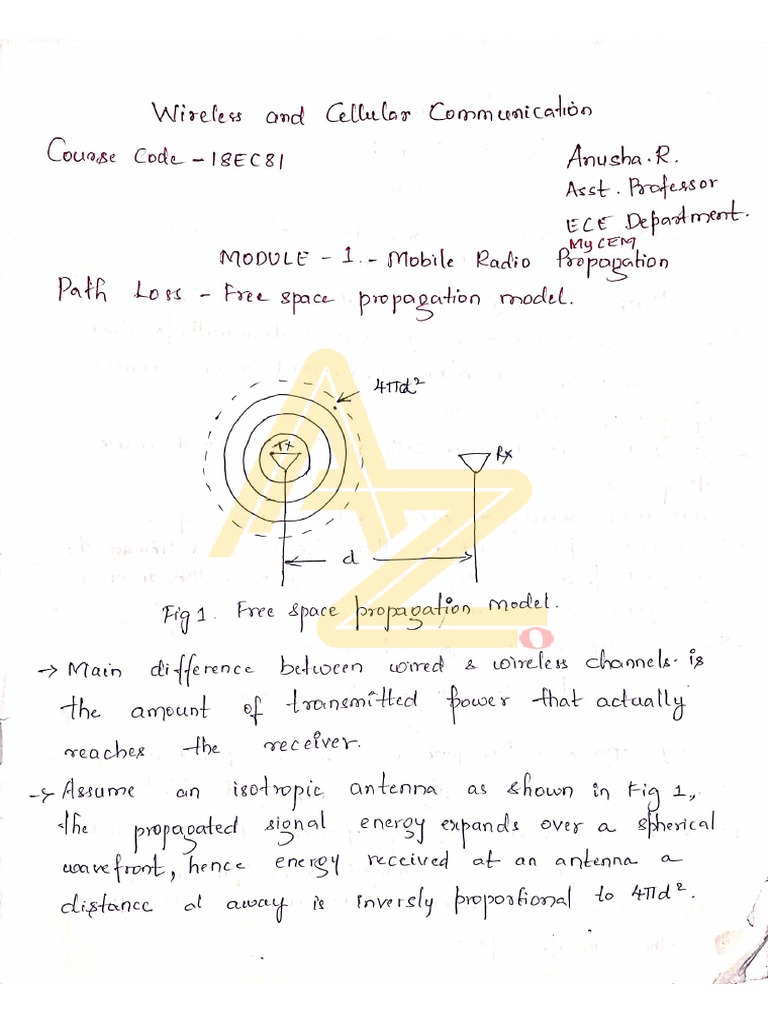 Wireless and Cellular Communication
Course Code - 18EC81
Anusha.R.
Asst. Professor
ECE Department.
MyCEM
MODULE - 1. - Mobile Radio Propagation
Path Loss - Free space propagation model.
4πd²
Tx
Rx
d
AZ
O
Fig 1. Free space propagation model.
→ Main difference between wired & wireless channels is
the amount of transmitted power that actually
reaches the receiver.
→ Assume an isotropic antenna as shown in Fig 1,
the propagated signal energy expands over a spherical
wavefront, hence energy received at an antenna a
distance d away is inversly proportional to 4πd².